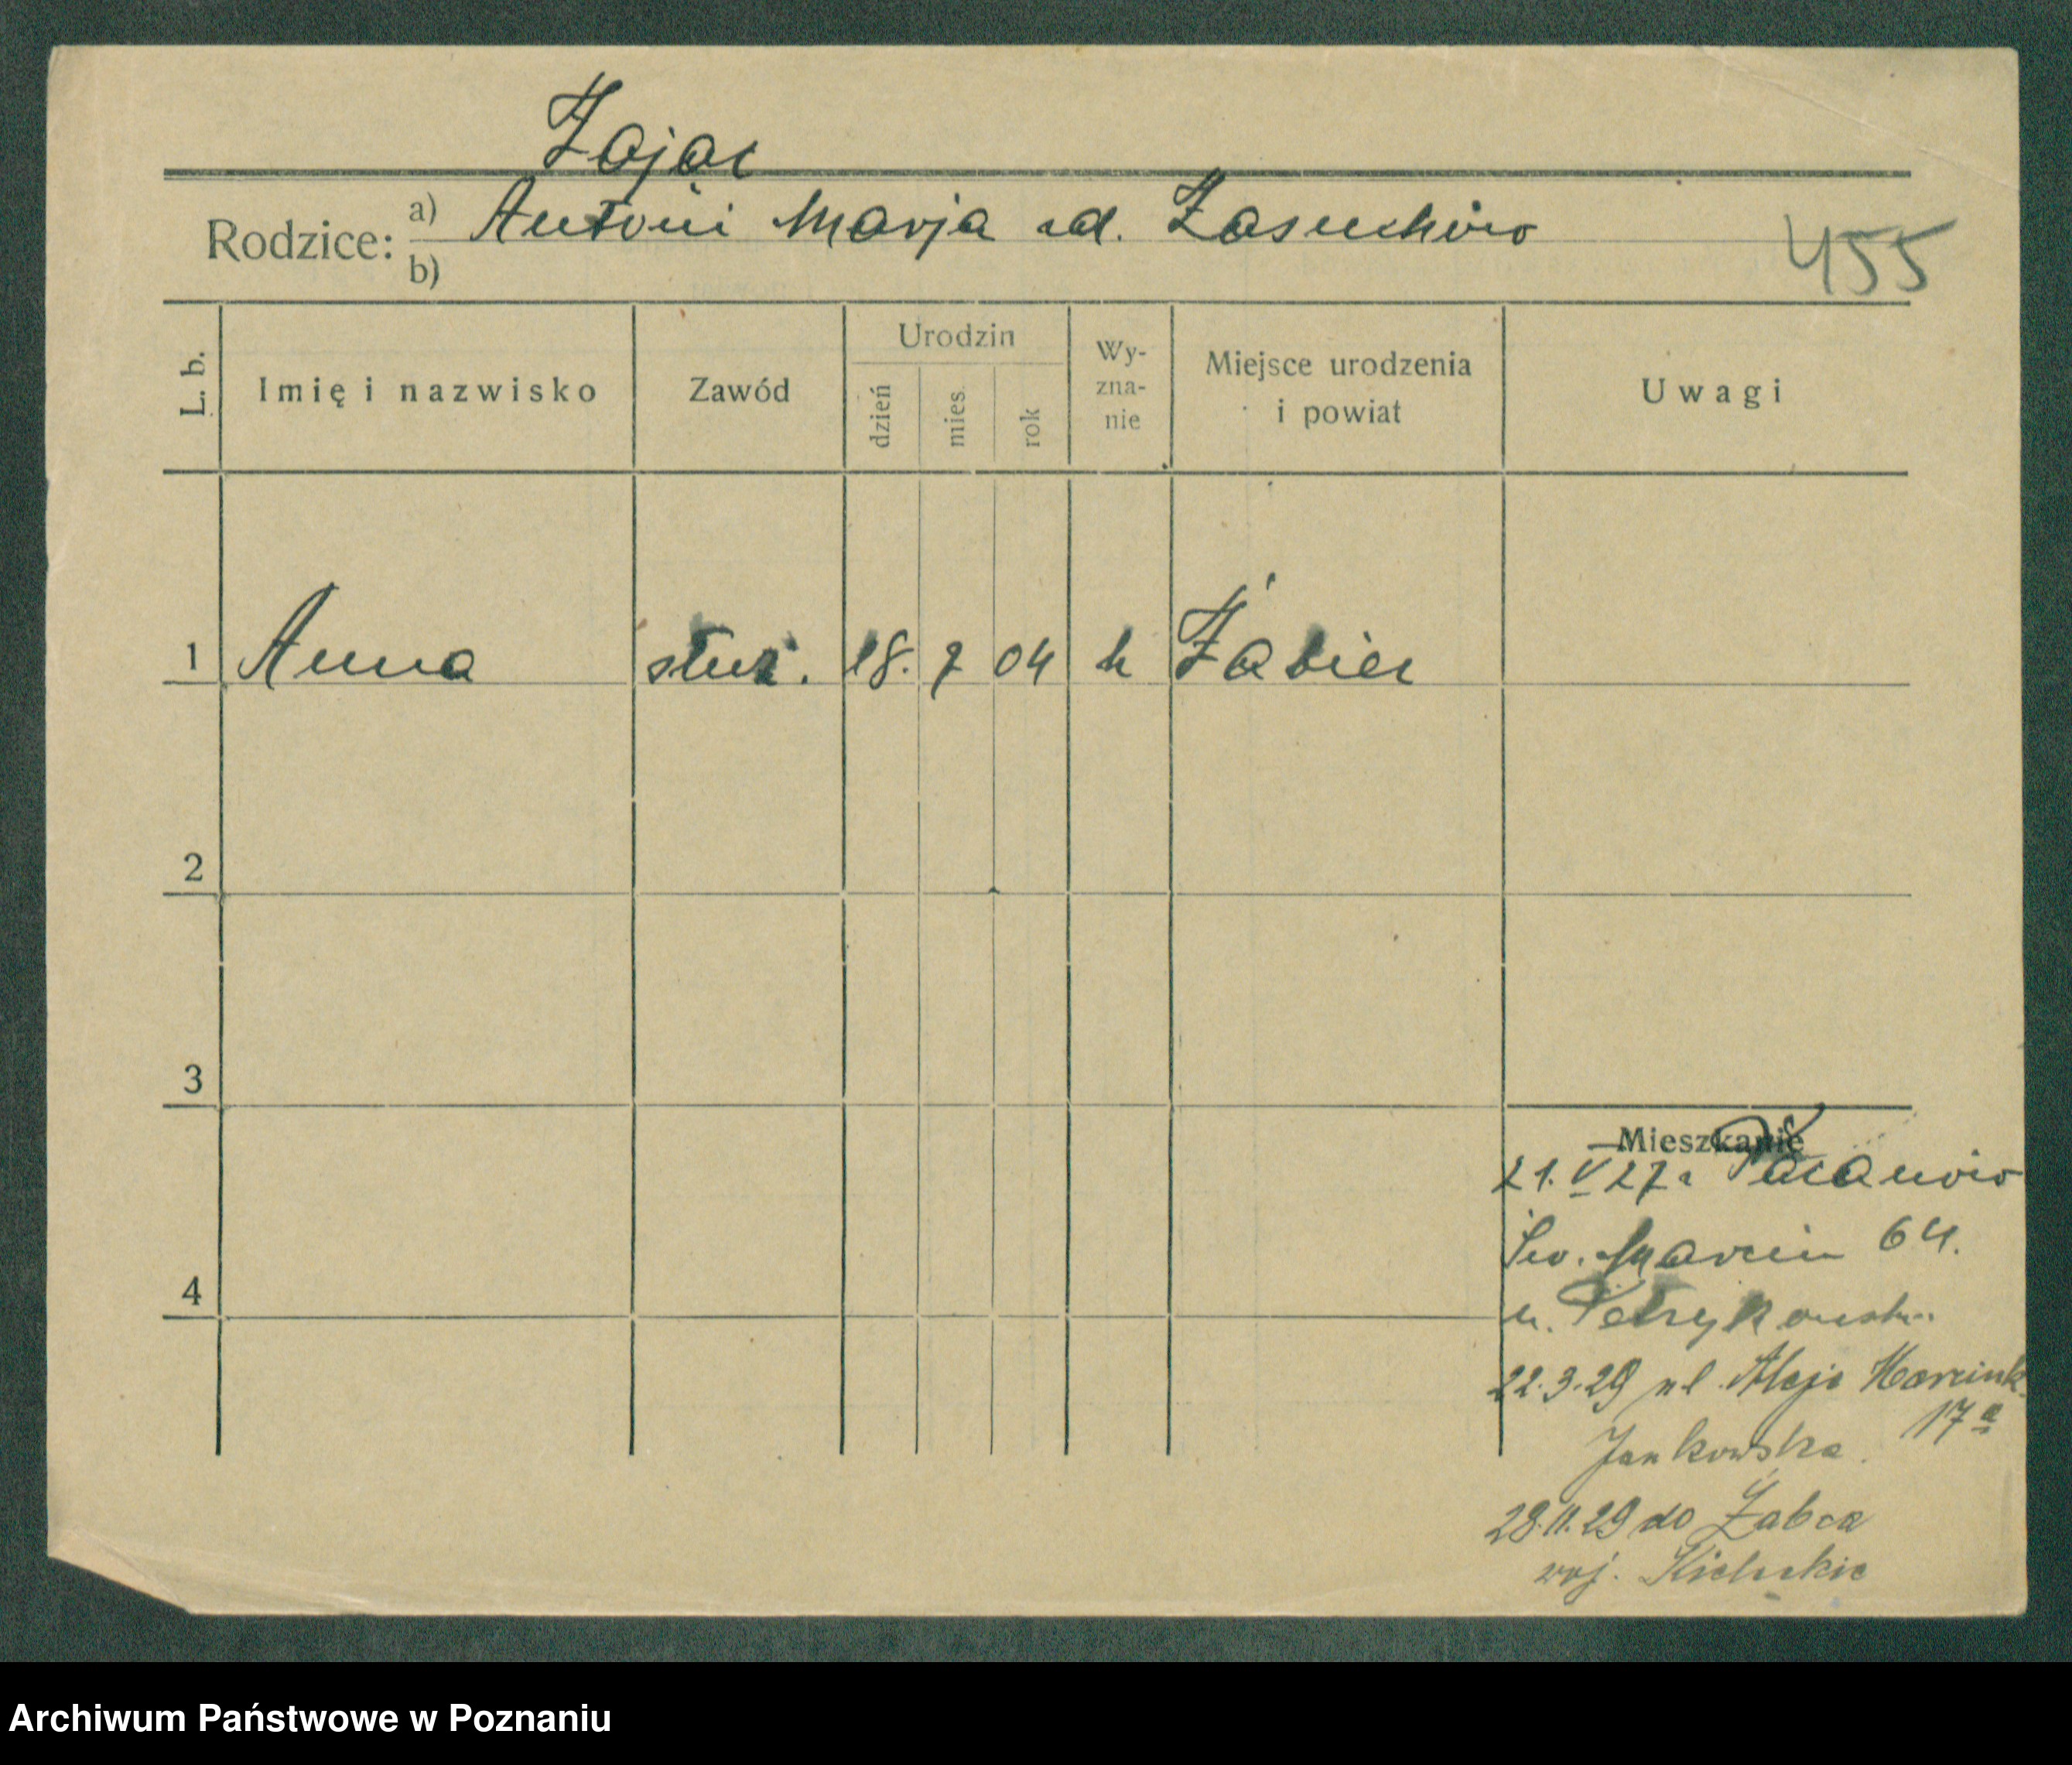 Zając
Rodzice: a) Antoni Marja zd. Zasuchów
b)
455
L. b.
Imię i nazwisko
Zawód
Urodzin
dzień
mies.
rok
Wy-
zna-
nie
Miejsce urodzenia
i powiat
Uwagi
1 Anna służ. 18. 7 04 k Żabiec
2
3
4
Mieszkanie
21. V 27 z Pacanów
Św. Marcin 64.
u.
22.3.29 pl. Aleje Marcink.
17a
Jankowska.
28.11.29 do Żabca
woj. Kieleckie
Archiwum Państwowe w Poznaniu